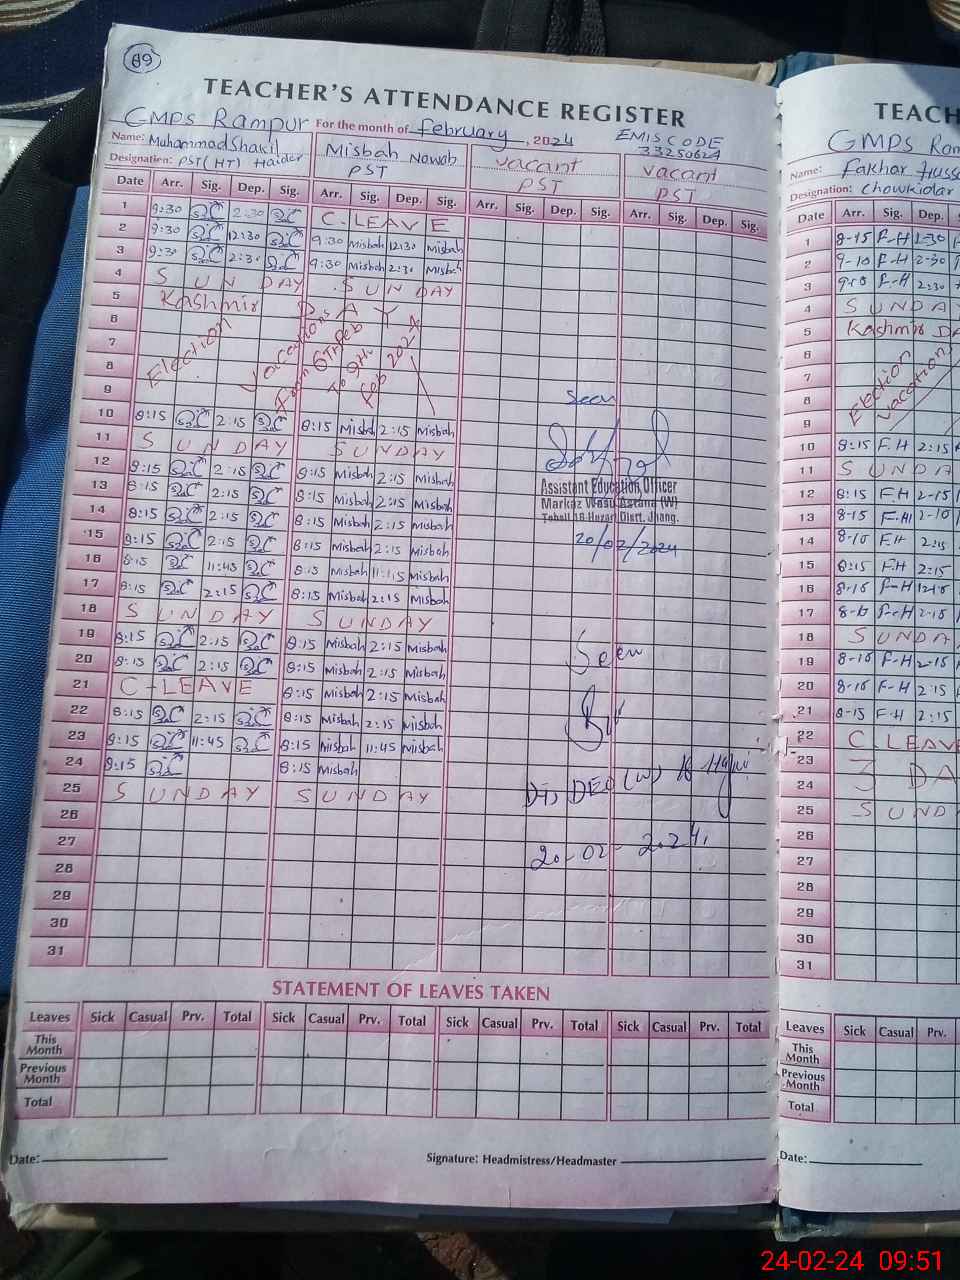 89
TEACHER'S ATTENDANCE REGISTER
GMPS Rampur For the month of february, 2024 EMIS CODE
33250624
Name: Muhammad Shakil Misbah Nawab vacant vacant
Designation: PST (HT) Haider PST PST PST
Date Arr. Sig. Dep. Sig. Arr. Sig. Dep. Sig. Arr. Sig. Dep. Sig. Arr. Sig. Dep. Sig.
1 9:30 2:30 C-LEAVE
2 9:30 12:30 9:30 Misbah 12:30 Misbah
3 9:30 2:30 9:30 Misbah 2:30 Misbah
4 SUNDAY SUNDAY
5 Kashmir DAY
6
7
8
9
Election Vacations from 6th Feb To 9th Feb 2024
10 8:15 2:15 8:15 Misbah 2:15 Misbah
11 SUNDAY SUNDAY
12 8:15 2:15 8:15 Misbah 2:15 Misbah
13 8:15 2:15 8:15 Misbah 2:15 Misbah
14 8:15 2:15 8:15 Misbah 2:15 Misbah
15 8:15 2:15 8:15 Misbah 2:15 Misbah
16 8:15 11:45 8:15 Misbah 11:15 Misbah
17 8:15 2:15 8:15 Misbah 2:15 Misbah
18 SUNDAY SUNDAY
19 8:15 2:15 8:15 Misbah 2:15 Misbah
20 8:15 2:15 8:15 Misbah 2:15 Misbah
21 C-LEAVE 8:15 Misbah 2:15 Misbah
22 8:15 2:15 8:15 Misbah 2:15 Misbah
23 8:15 11:45 8:15 Misbah 11:45 Misbah
24 8:15 8:15 Misbah
25 SUNDAY SUNDAY
26
27
28
29
30
31
Seen
Assistant Education Officer
Markaz Wasu Astana (W)
Tehsil 18 Hazari Distt. Jhang.
20/02/2024
Seen
Dy, DEO (W)
20-02-2024,
STATEMENT OF LEAVES TAKEN
Leaves Sick Casual Prv. Total Sick Casual Prv. Total Sick Casual Prv. Total Sick Casual Prv. Total
This Month
Previous Month
Total
Date: Signature: Headmistress/Headmaster
TEACH
GMPS
Name: Fakhar
Designation: Chowkidar
Date Arr. Sig. Dep.
1 8-15 F-H
2 9-10 F-H 12-30
3 F-H 2:30
4 SUNDA
5 Kashmir DA
6
7
8
9
Election vacation
10 8:15 F.H 2:15
11 SUNDA
12 8:15 F.H 2-15
13 8-15 F-H 2-10
14 8-10 F.H 2:15
15 8:15 F.H 2:15
16 8-16 F-H
17 F-H 2-15
18 SUNDA
19 8-16 F-H 2-15
20 8-16 F-H 2:15
21 8-15 F-H 2:15
22 C-LEAVE
23
24 3 DA
25 SUNDA
26
27
28
29
30
31
Leaves Sick Casual Prv.
This Month
Previous Month
Total
Date:
24-02-24 09:51